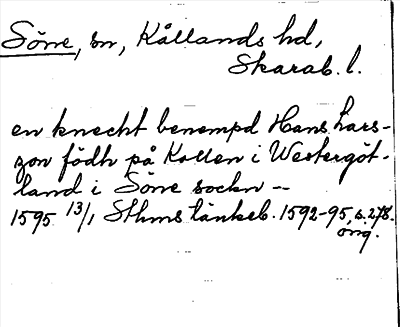 Söne, sn, Kållands hd,
Skarab. l.
en knecht benempd Hans Lars-
zon födh på Kollen i Westergöt-
land i Söne sockn --
1595 13/1 Sthms tänkeb. 1592-95, s. 278.
orig.